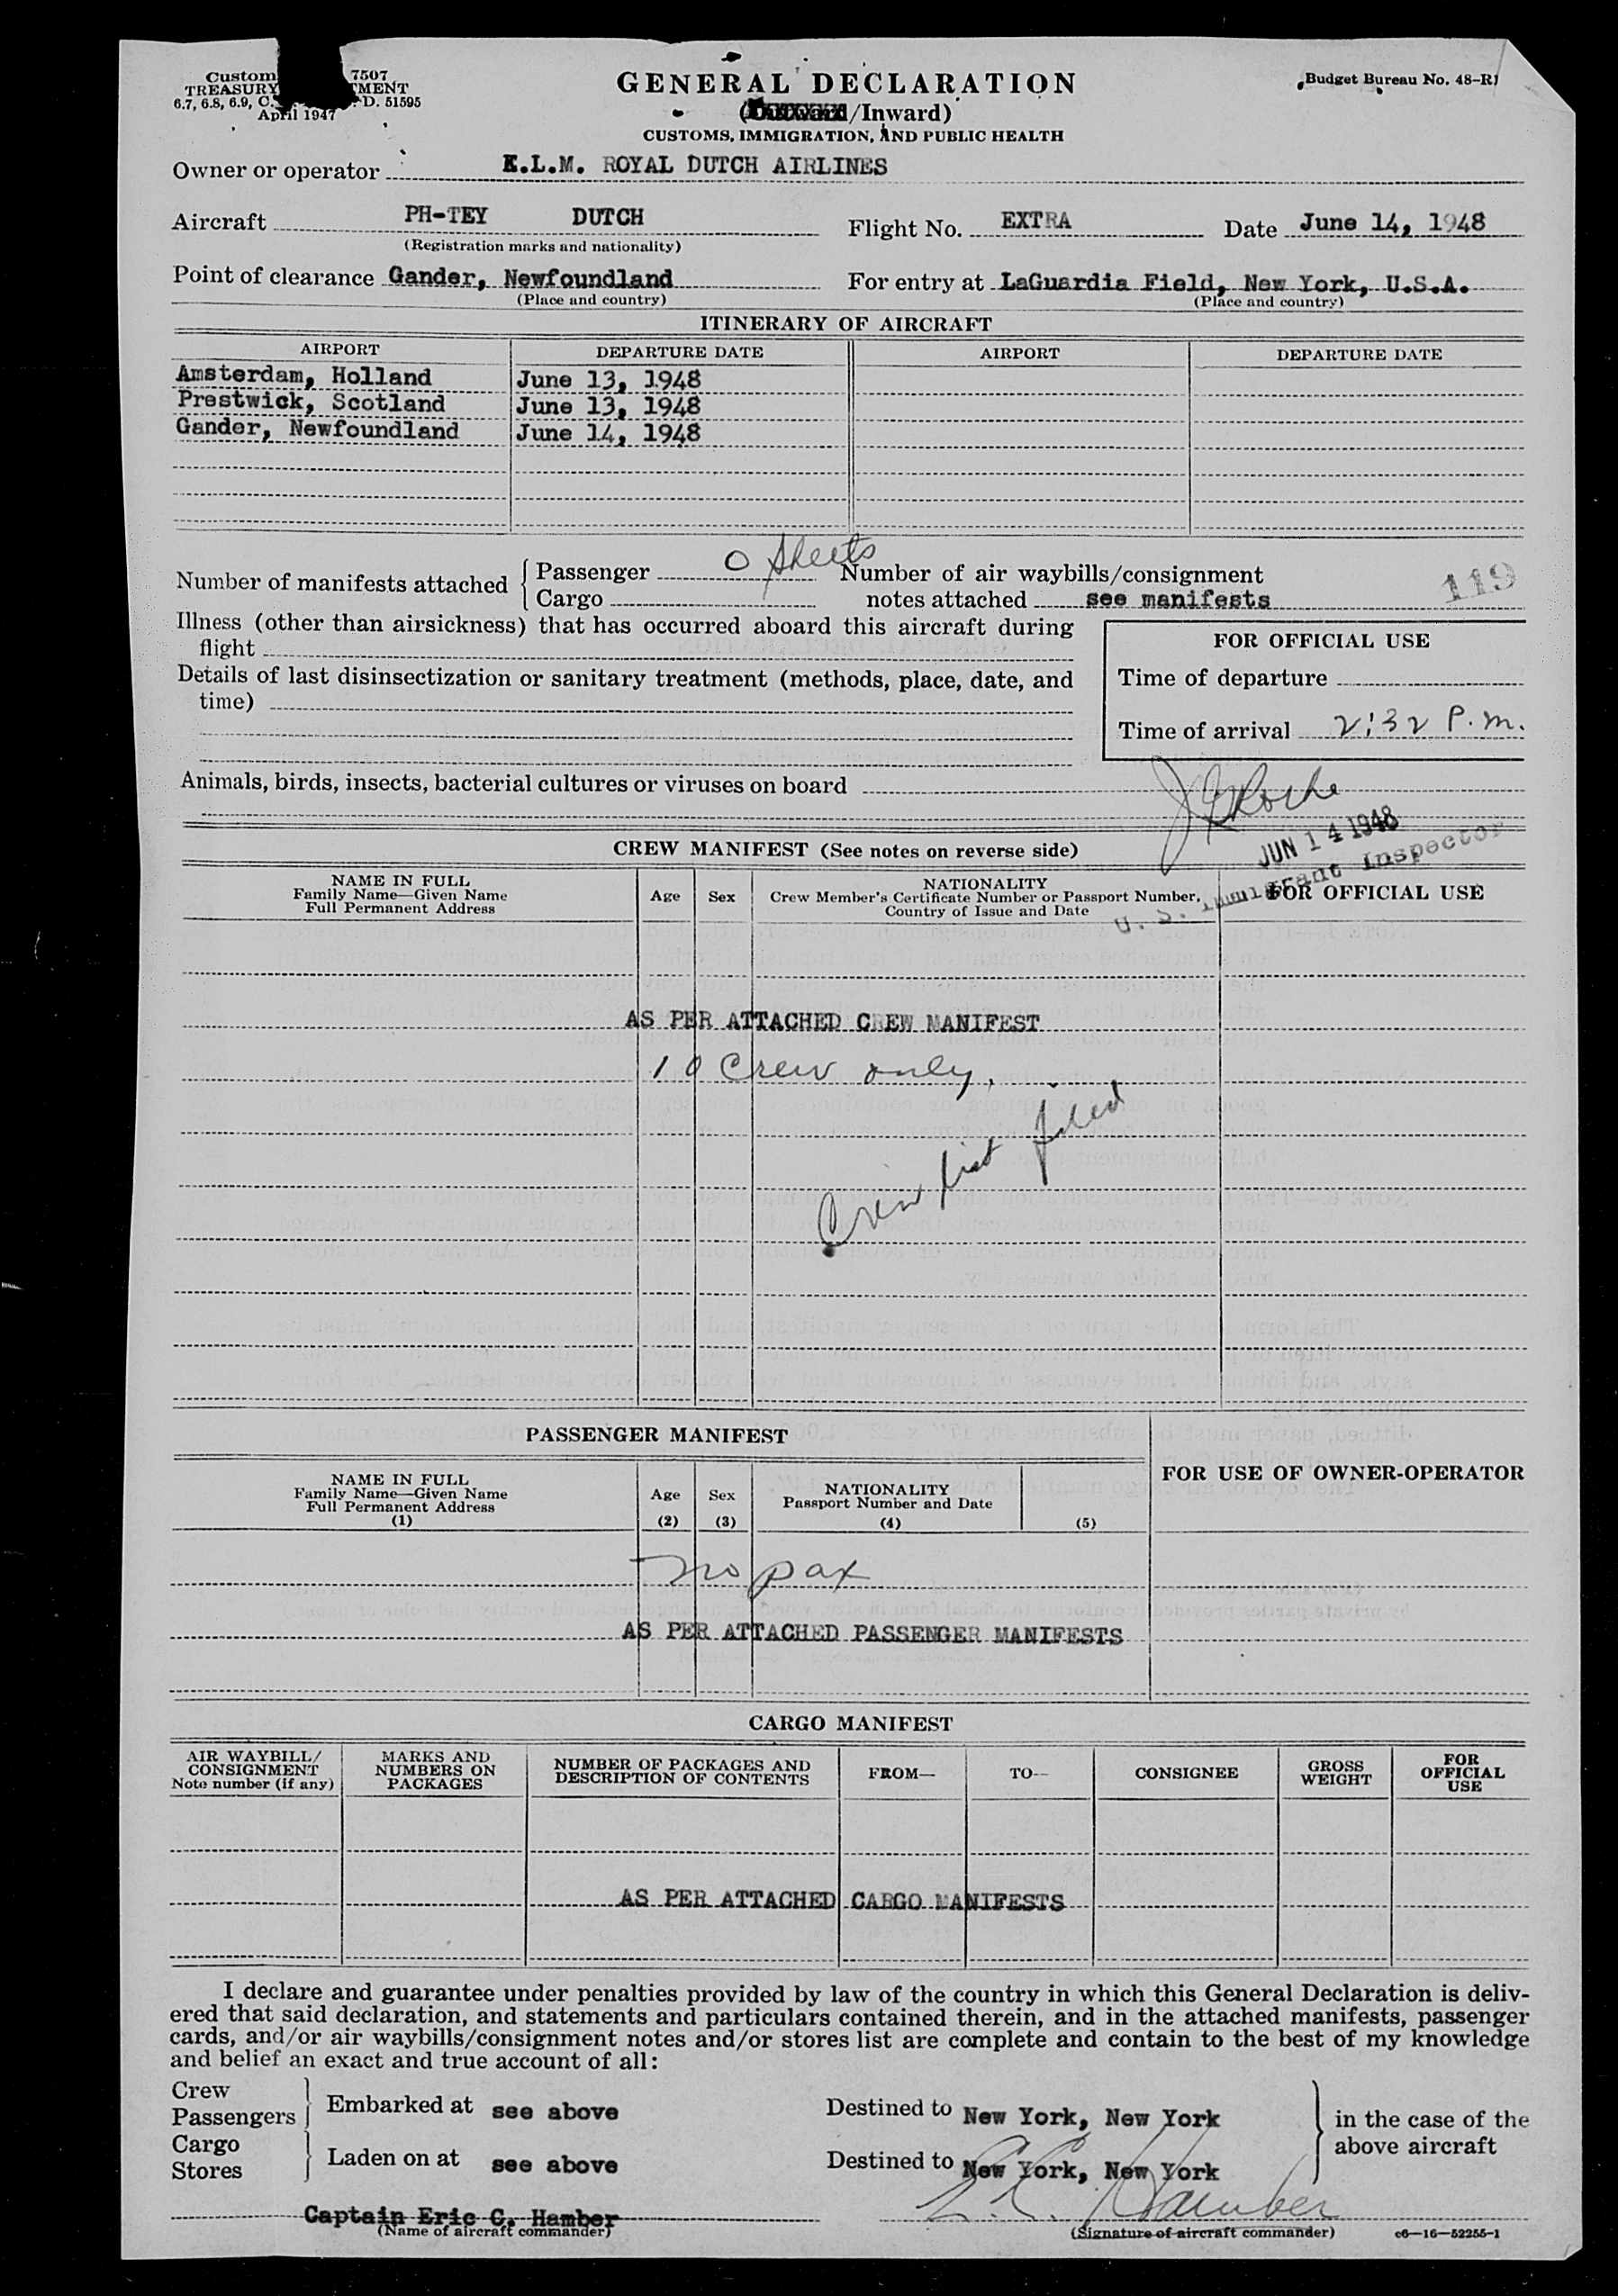 Custom 7507
TREASURY TMENT
6.7, 6.8, 6.9, C. D. 51595
April 1947
GENERAL DECLARATION
(Outward/Inward)
CUSTOMS, IMMIGRATION, AND PUBLIC HEALTH
Budget Bureau No. 48-R
Owner or operator K.L.M. ROYAL DUTCH AIRLINES
Aircraft PH-TEY DUTCH Flight No. EXTRA Date June 14, 1948
(Registration marks and nationality)
Point of clearance Gander, Newfoundland For entry at LaGuardia Field, New York, U.S.A.
(Place and country) (Place and country)
ITINERARY OF AIRCRAFT
AIRPORT DEPARTURE DATE AIRPORT DEPARTURE DATE
Amsterdam, Holland June 13, 1948
Prestwick, Scotland June 13, 1948
Gander, Newfoundland June 14, 1948
Number of manifests attached { Passenger 0 sheets Number of air waybills/consignment
Cargo notes attached see manifests
119
Illness (other than airsickness) that has occurred aboard this aircraft during
flight
Details of last disinsectization or sanitary treatment (methods, place, date, and
time)
FOR OFFICIAL USE
Time of departure
Time of arrival 2:32 P.m.
Animals, birds, insects, bacterial cultures or viruses on board
J Roche
JUN 14 1948
U. S. Immigrant Inspector
CREW MANIFEST (See notes on reverse side)
NAME IN FULL
Family Name—Given Name
Full Permanent Address
Age Sex
NATIONALITY
Crew Member's Certificate Number or Passport Number,
Country of Issue and Date
FOR OFFICIAL USE
AS PER ATTACHED CREW MANIFEST
10 Crew only.
Crew list filed
PASSENGER MANIFEST
FOR USE OF OWNER-OPERATOR
NAME IN FULL
Family Name—Given Name
Full Permanent Address
(1)
Age
(2)
Sex
(3)
NATIONALITY
Passport Number and Date
(4)
(5)
no pax
AS PER ATTACHED PASSENGER MANIFESTS
CARGO MANIFEST
AIR WAYBILL/
CONSIGNMENT
Note number (if any)
MARKS AND
NUMBERS ON
PACKAGES
NUMBER OF PACKAGES AND
DESCRIPTION OF CONTENTS
FROM—
TO—
CONSIGNEE
GROSS
WEIGHT
FOR
OFFICIAL
USE
AS PER ATTACHED CARGO MANIFESTS
I declare and guarantee under penalties provided by law of the country in which this General Declaration is deliv-
ered that said declaration, and statements and particulars contained therein, and in the attached manifests, passenger
cards, and/or air waybills/consignment notes and/or stores list are complete and contain to the best of my knowledge
and belief an exact and true account of all:
Crew
Passengers } Embarked at see above Destined to New York, New York
Cargo
Stores } Laden on at see above Destined to New York, New York
} in the case of the
above aircraft
Captain Eric C. Hamber
E.C. Hamber
(Name of aircraft commander) (Signature of aircraft commander) c6—16—52255-1